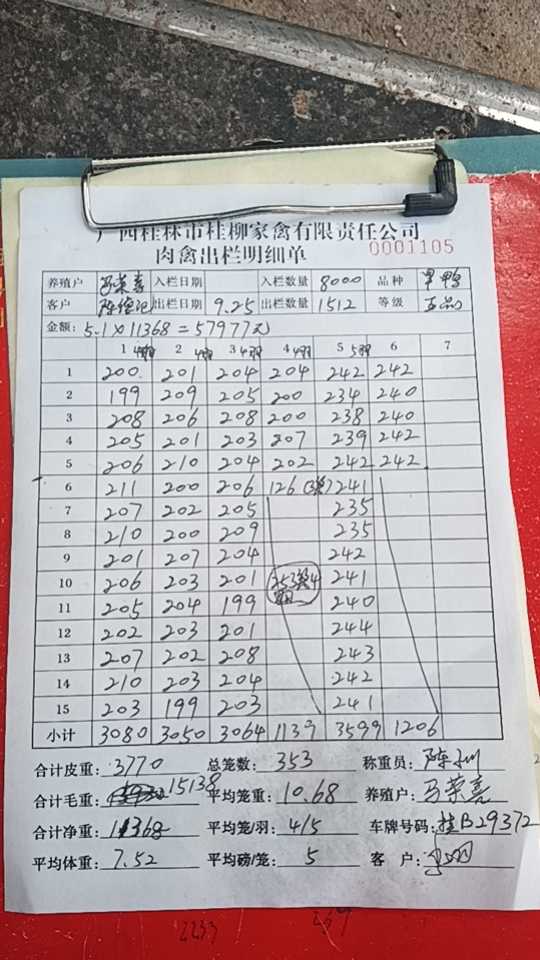 广西桂林市桂柳家禽有限责任公司
肉禽出栏明细单 0001105
养殖户 马荣喜 入栏日期 入栏数量 8000 品种
客户 出栏日期 9.25 出栏数量 1512 等级
金额: 5.1×11368=57977元
1 2 3 4 5 6 7
1 200 201 204 204 242 242
2 199 209 205 200 234 240
3 208 206 208 200 238 240
4 205 201 203 207 239 242
5 206 210 204 202 242 242
6 211 200 206 126 241
7 207 202 205 235
8 210 200 209 235
9 201 207 204 242
10 206 203 201 241
11 205 204 199 240
12 202 203 201 244
13 207 202 208 243
14 210 203 204 242
15 203 199 203 241
小计 3080 3050 3064 1139 3599 1206
合计皮重: 3770 总笼数: 353 称重员:
合计毛重: 15138 平均笼重: 10.68 养殖户: 马荣喜
合计净重: 11368 平均笼/羽: 4/5 车牌号码: 桂B29372
平均体重: 7.52 平均磅/笼: 5 客户: